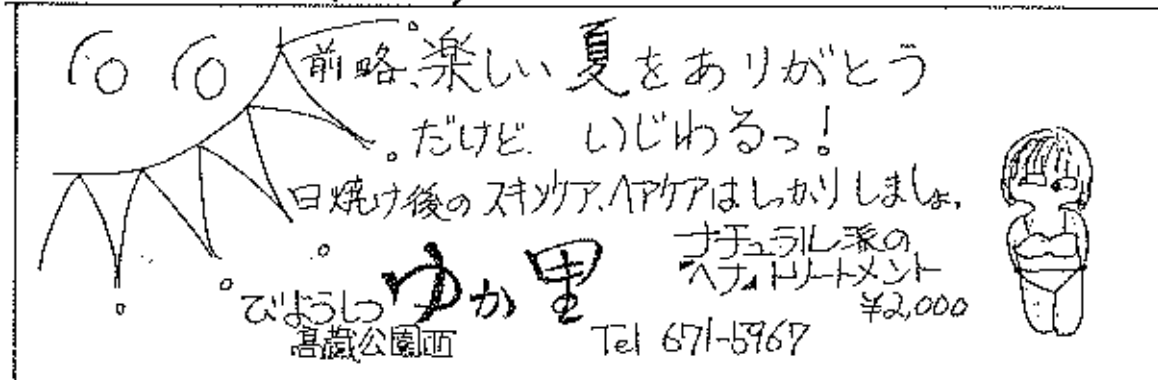 前略、楽しい夏をありがとう
だけど、いじわるっ!
日焼け後のスキンケア、ヘアケアはしっかりしましょ。
ナチュラル派の
“ヘナ”トリートメント
¥2,000
びようしつ ゆか里
高蔵公園西
Tel 671-5967